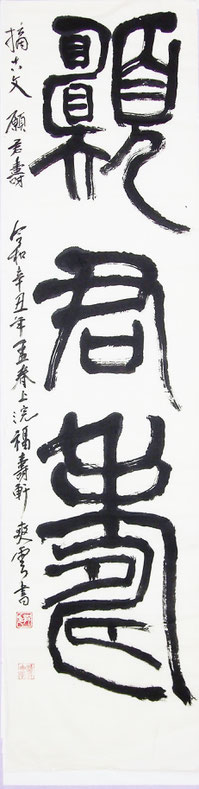 願君壽
摘古文 願君壽
令和辛丑年孟春上浣福壽軒 爽雲書